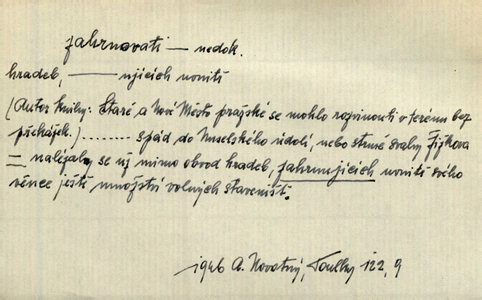 zahrnovati — nedok.
hradeb, —— ujících uvnitř
(Autor knihy: Staré a Nové Město pražské se mohlo rozvinouti v terénu bez
překážek.) ........ spád do Nuselského údolí, nebo strmé svahy Žižkova
— nalézaly se už mimo obvod hradeb, zahrnujících uvnitř svého
věnce ještě množství volných stavenišť.
1946 A. Novotný, Toulky 122, 9